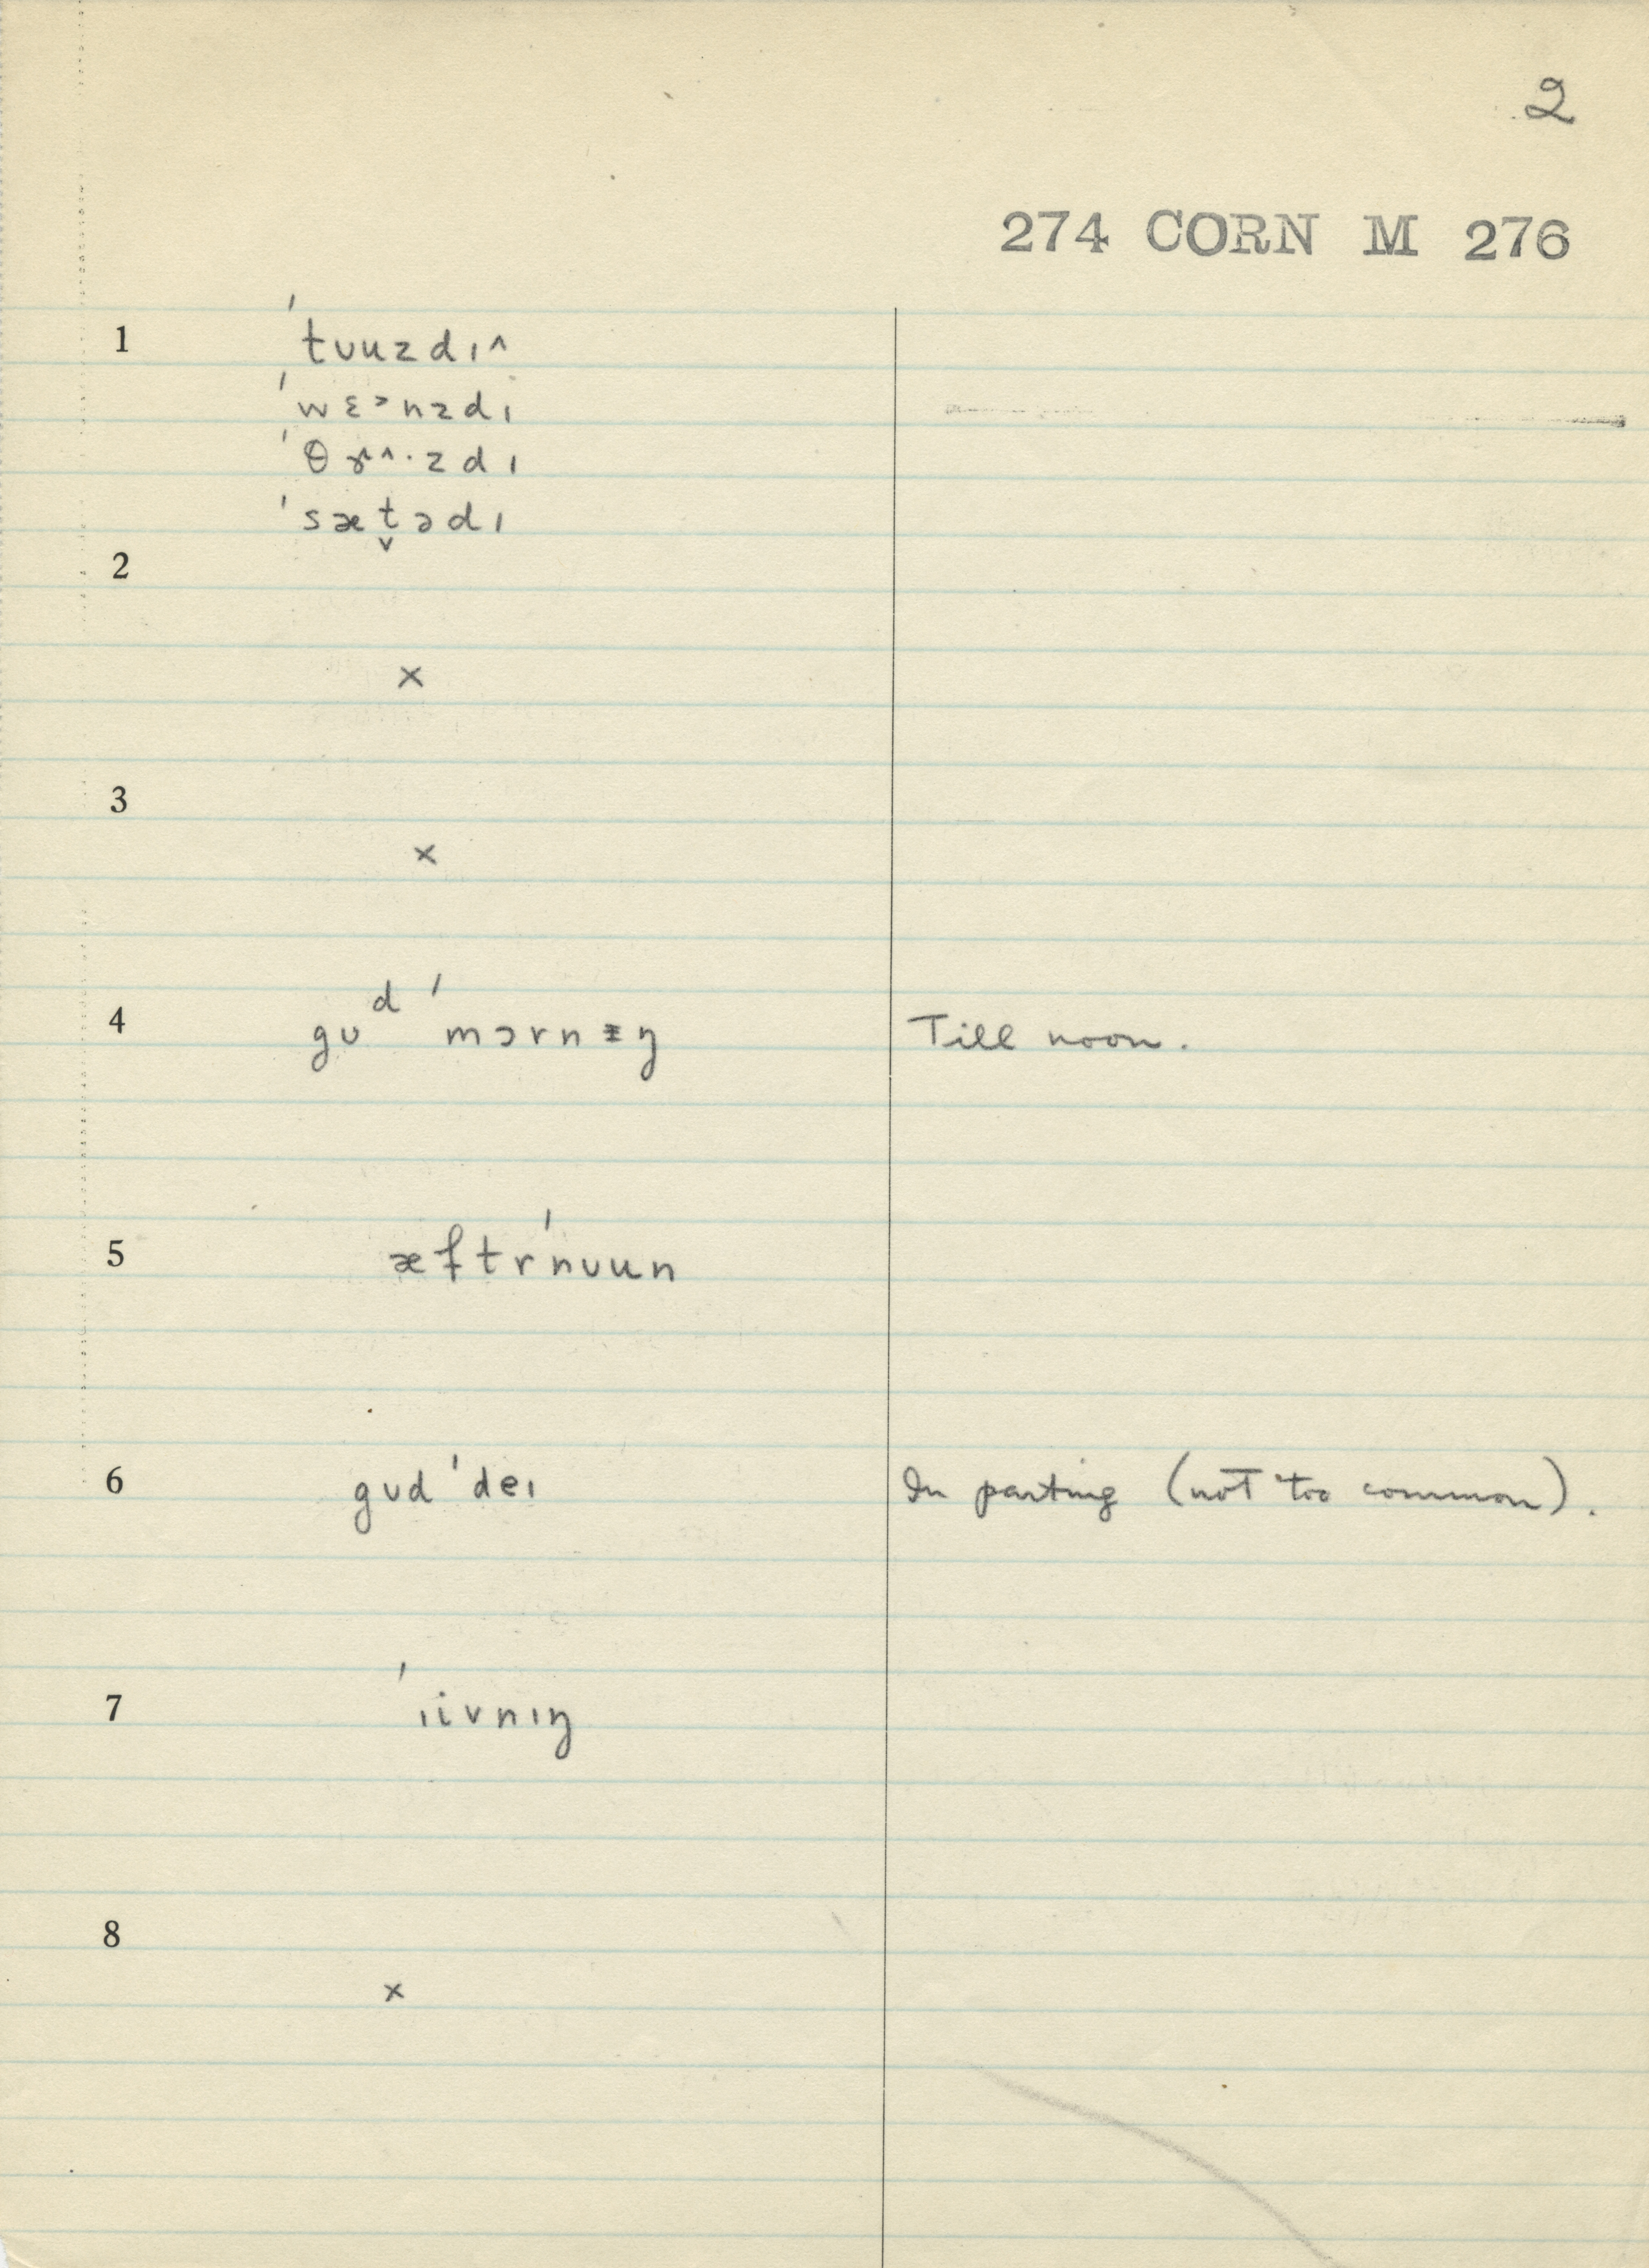 2
274 CORN M 276
1 ˈtʊuzdɪ^
ˈwɛᵊnzdɪ
ˈθɝ^·zdɪ
ˈsæt̬ədɪ
2
×
3
×
4 gʊᵈ ˈmɔrnɪŋ Till noon.
5 æftrˈnʊun
6 gʊdˈdeɪ In parting (not too common).
7 ˈɪivnɪŋ
8
×